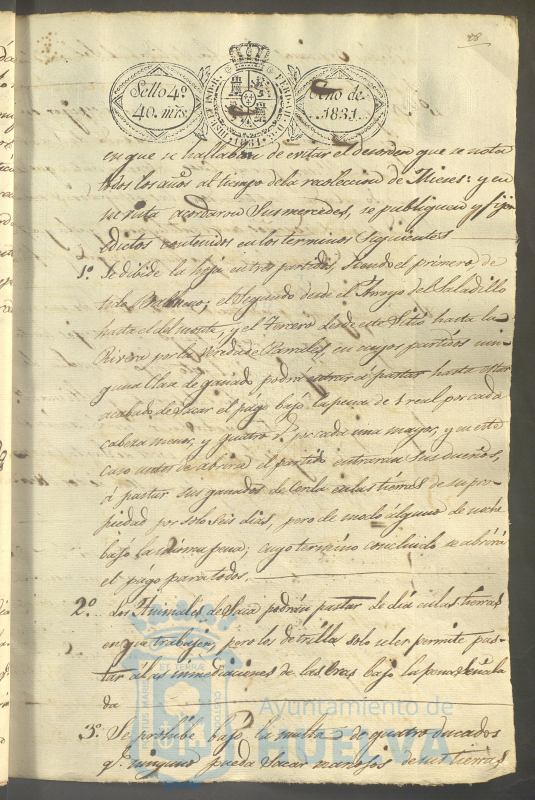 28
Sello 4º
40. mrs.
Año de
1831.
en que se hallaban de evitar el desorden que se nota
todos los años al tiempo de la recoleccion de Mieses: y en
su vista acordaron Sus mercedes, se publiquen y fijen
edictos contenidos en los terminos siguientes
1º Se divide la hoja en tres partidos, siendo el primero de
todo el Segundo desde el Arroyo del Saladillo
hasta el del y el Tercero desde este Sitio hasta la
Rivera por la Vereda de en cuyos partidos nin-
guna clase de ganado podrá entrar á pastar hasta estar
acabado de sacar el págo bajo la pena de 1 real por cada
cabeza menor, y quatro rs. por cada una mayor, y en este
caso antes de abrirse el partido entrarán sus dueños,
á pastar sus ganados de Cerda en las tierras de su pro-
piedad por solo seis dias, pero de modo alguno de noche
bajo la misma pena; cuyo termino concluido se abrirá
el págo para todos.
2º Los Animales de podrán pastar de dia en las tierras
en que trabajen, pero los de trilla solo se les permite pas-
tar á las inmediaciones de las Eras bajo la pena señala
da
3º Se prohibe bajo la multa de quatro ducados
qe. ninguno pueda sacar manojos de sus tierras
Ayuntamiento de
HUELVA